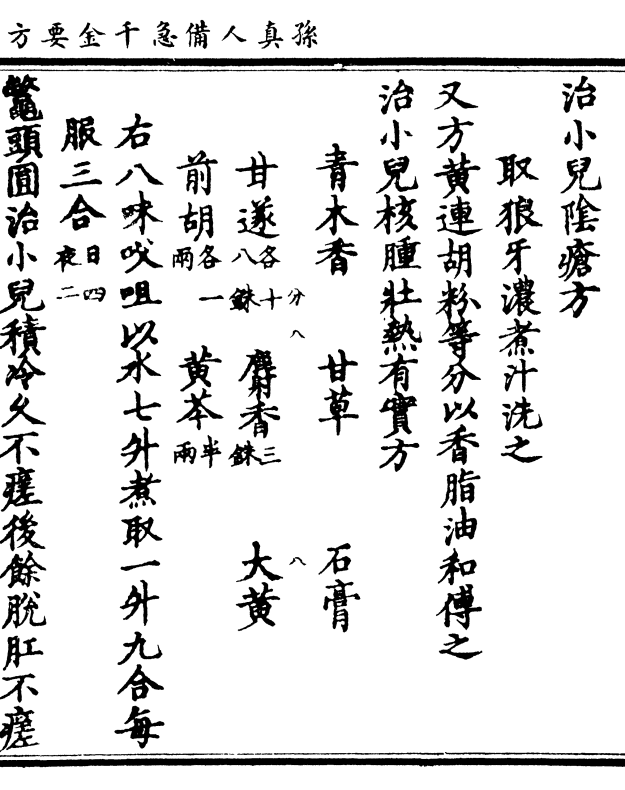 孫真人備急千金要方
治小兒陰瘡方
取狼牙濃煮汁洗之
又方黄連胡粉等分以香脂油和傅之
治小兒核腫壯熱有實方
青木香 甘草 石膏
分八 八
甘遂各十八銖 麝香三銖 大黄
前胡各一兩 黄芩半兩
右八味㕮咀以水七升煮取一升九合每
服三合日四夜二
鼈頭圓治小兒積冷久不瘥後餘脫肛不瘥